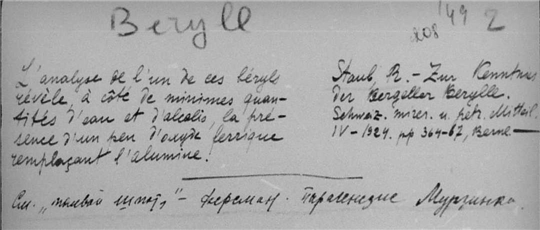 Beryll
'49 2
208
L'analyse de l'un de ces béryls
révèle, à côté de minimes quan-
tités d'eau et d'alcalis, la pré-
sence d'un peu d'oxyde ferrique
remplaçant l'alumine.
Staub R. - Zur Kenntnis
der Bergeller Berylle.
Schweiz. miner. u. petr. Mitteil.
IV - 1924. pp 364-67, Berne —
См. „полевой шпат" - Ферсман. Парагенезис Мурзинка.